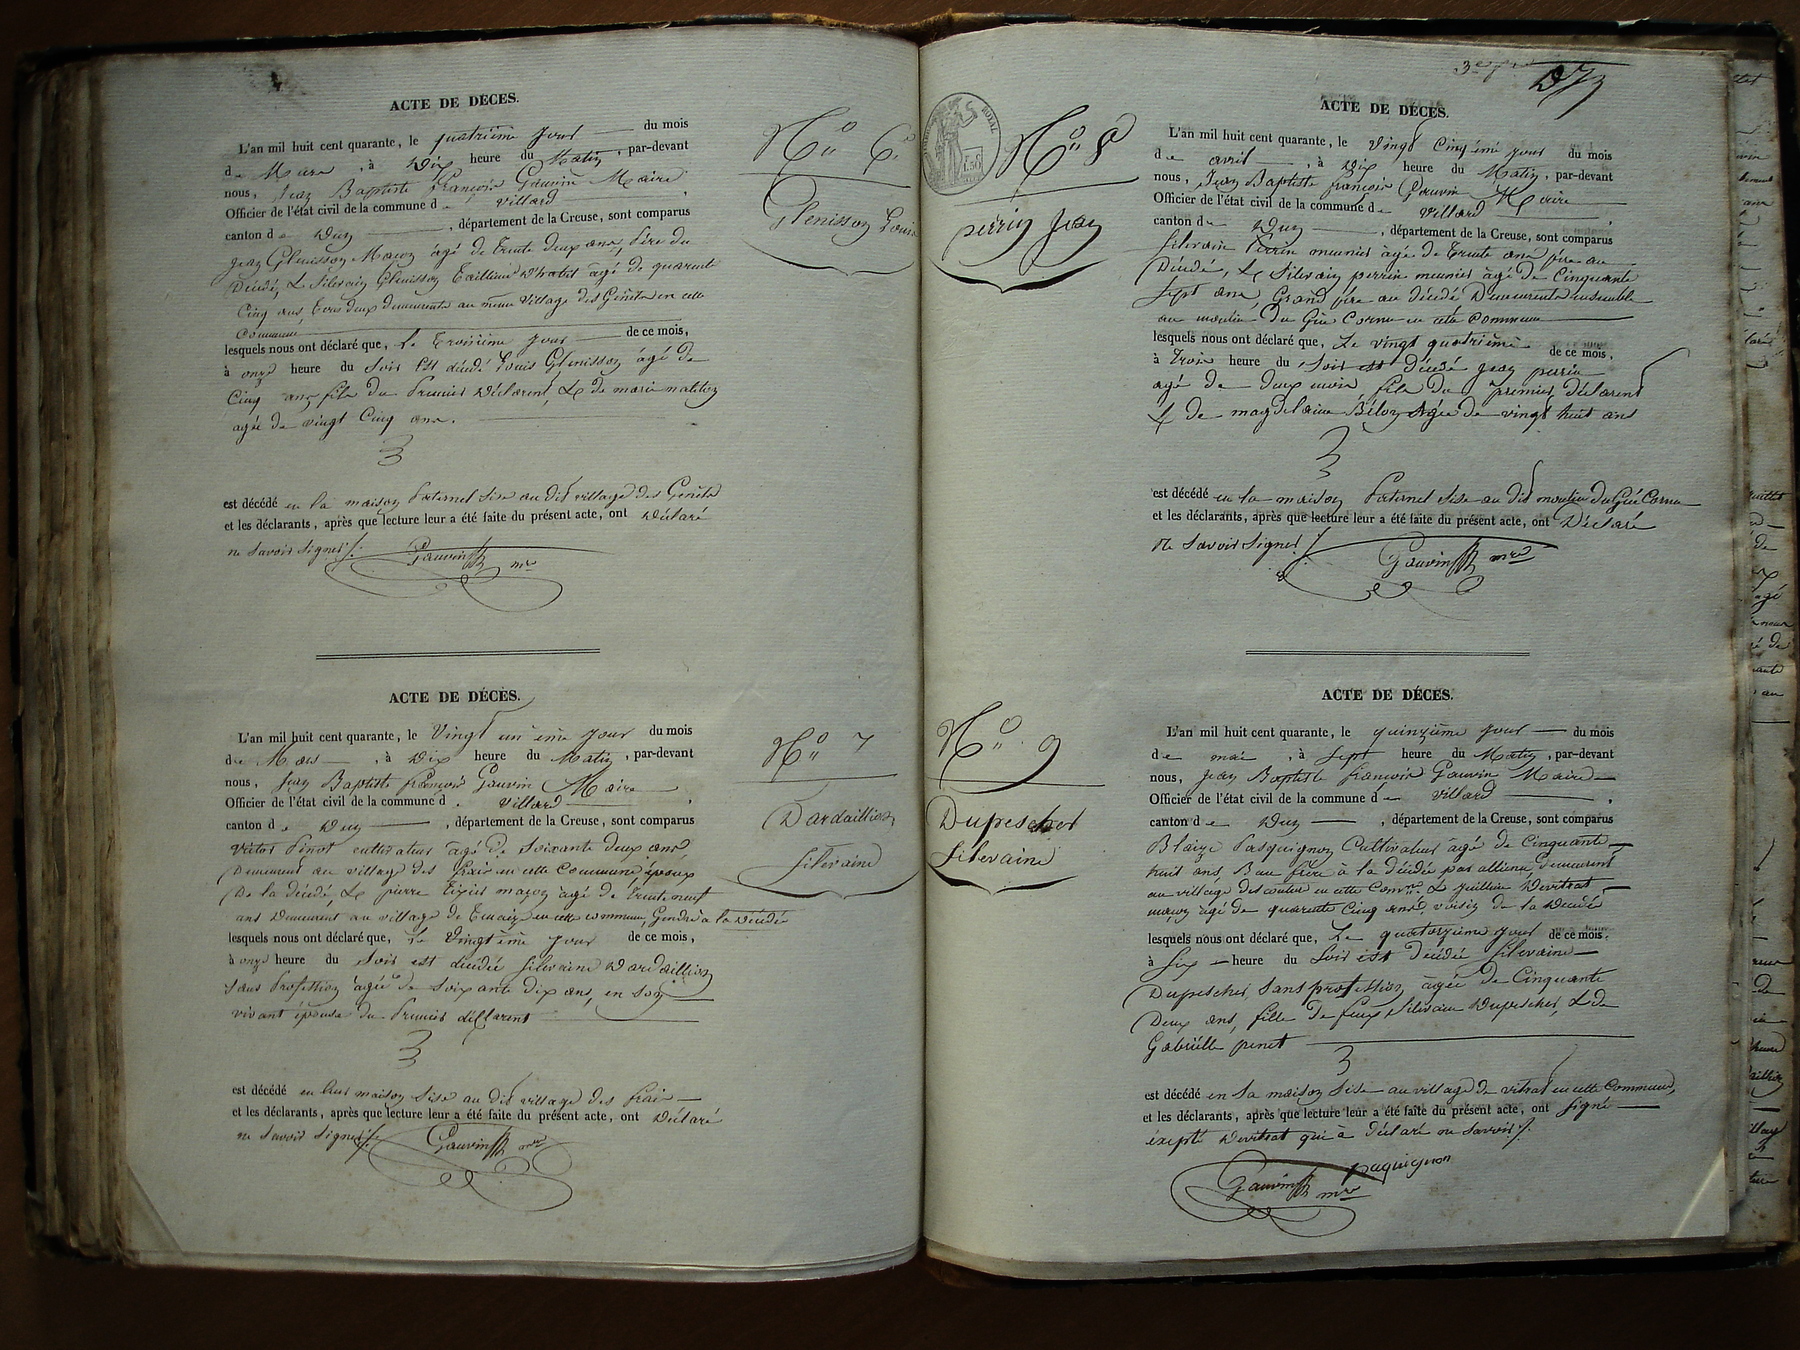 ACTE DE DÉCÈS.
L'an mil huit cent quarante, le quatrième jour du mois
de Mars, à Dix heure du Matin, par-devant
nous, Jean Baptiste françois Gauvin Maire
Officier de l'état civil de la commune de Villard
canton de Dun, département de la Creuse, sont comparus
Jean Glenisson Maçon âgé de trente deux ans, Père du
Décédé, & Silevain Glenisson Tailleur D'habit âgé de quarente
Cinq ans, tous deux demeurents au même village des Genêts en cette
Commune
lesquels nous ont déclaré que, le troisième jour de ce mois,
à onze heure du soir Est décédé Louis Glenisson âgé de
Cinq ans fils du Premier Déclarent, & de marie
agée de vingt Cinq ans.
est décédé en la maison Paternel Sise au dit village des Genêts
et les déclarants, après que lecture leur a été faite du présent acte, ont Déclaré
ne savoir signer ./.
Gauvin mre
No 6
Glenisson Louis
ACTE DE DÉCÈS.
L'an mil huit cent quarante, le Vingt un ième jour du mois
de Mars, à Dix heure du Matin, par-devant
nous, Jean Baptiste françois Gauvin Maire
Officier de l'état civil de la commune d Villard
canton de Dun, département de la Creuse, sont comparus
Victor Pinot cultivateur âgé de Soixante deux ans
Demeurent au village des frais en cette Commune époux
De la décédé, & pierre Tixier maçon âgé de trente neuf
ans Demeurent au village de en cette commune, Gendre a la Décédée
lesquels nous ont déclaré que, le Vingtième jour de ce mois,
à onze heure du Soir est décédée Silevaine Dardaillion
Sans Profession âgée de Soixante dix ans, en son
vivant épouse du Premier déclarent
est décédé en leur maison Sise au dit village des frais
et les déclarants, après que lecture leur a été faite du présent acte, ont Déclaré
ne savoir signer ./.
Gauvin mre
No 7
Dardaillion
Silevaine
273
ROYAL
No 8
perrin Jean
ACTE DE DÉCÈS.
L'an mil huit cent quarante, le Vingt Cinqième jour du mois
de avril, à Dix heure du Matin, par-devant
nous, Jean Baptiste françois Gauvin Maire
Officier de l'état civil de la commune de Villard
canton de Dun, département de la Creuse, sont comparus
Silevain Perrin meunier âgé de Trente ans père au
Décédé, & Silevain perrin meunier âgé de Cinquante
Sept ans, Grand père au décédé Demeurents ensemble
au moulin du Gué Cornu en cette Commune
lesquels nous ont déclaré que, le vingt quatrième de ce mois,
à Trois heure du Soir est Décédé Jean perrin
agé de deux mois fils du premier déclarent
& de magdelaine Bélon Agée de vingt huit ans
est décédé en la maison Paternel Sise au dit moulin du Gué Cornu
et les déclarants, après que lecture leur a été faite du présent acte, ont Déclaré
Ne Savoir Signer ./.
Gauvin mre
No 9
Dupeschet
Silevaine
ACTE DE DÉCÈS.
L'an mil huit cent quarante, le quinzième jour du mois
de mai, à Sept heure du Matin, par-devant
nous, Jean Baptiste françois Gauvin Maire
Officier de l'état civil de la commune de Villard
canton de Dun, département de la Creuse, sont comparus
Blaize Pasquignon Cultivateur âgé de Cinquante
huit ans, Beau frère à la décédée par alliance, demeurent
au village des en cette Comne & Guillien Devitrat
maçon âgé de quarente Cinq ans, voisin de la Décédé
lesquels nous ont déclaré que, Le quatorzième jour de ce mois,
à Six heure du Soir est Décédée Silevaine
Dupeschet Sans profession âgée de Cinquante
Deux ans, fille De feux Silevain Dupeschet, & de
Gabrielle penot
est décédé en Sa maison Sise au village de vitrat en cette Commune,
et les déclarants, après que lecture leur a été faite du présent acte, ont Signé
éxepté Devitrat qui à Déclaré ne savoir ./.
paquignon
Gauvin mre